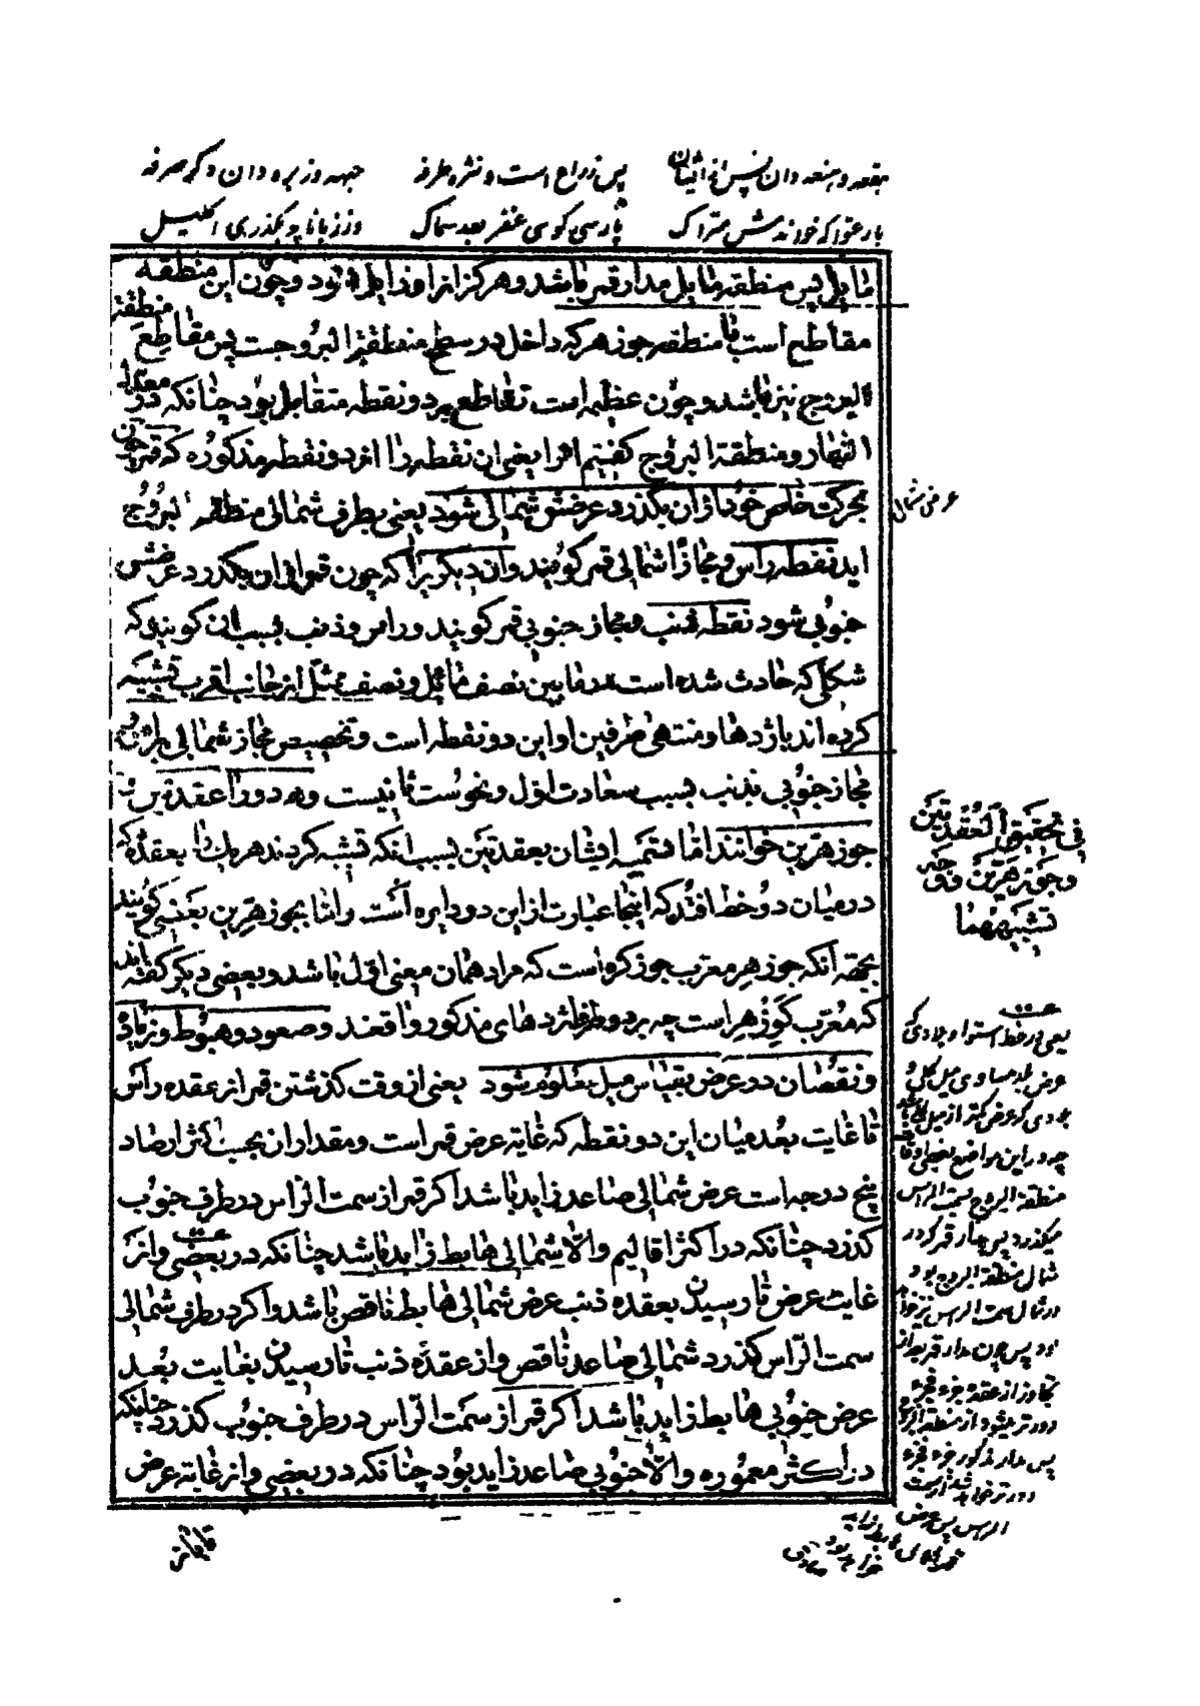 هقعه و هنعه دان پس از اثنان پس ذراع است و نثره طرفه جبهه و زبره دان دگر صرفه
بار عوا که خوانندش متراک پارسی کوی غفر بعد سماک وز زبانا چو بگذری اکلیل
مایل پس منطقه مایل مدار قمر باشد و هرگز از او زایل نه بود و چون این منطقه
مقاطع است با منطقه جوزهر که داخل در سطح منطقة البروجست پس مقاطع منطقة
البروج نیز باشد و چون عظیمه است تقاطع بر دو نقطه متقابل بود چنانکه در معدل
النهار و منطقة البروج کفتیم امر یعنی ان نقطه را از دو نقطه مذکوره که قمر چون
بحرکت خاص خود از ان بگذرد عرضش شمالی شود یعنی بطرف شمالی منطقة البروج
اید نقطه راس و مجاز شمالی قمر کویند وان دیگر را که چون قمر از ان بگذرد عرضش
جنوبی شود نقطه ذنب و مجاز جنوبی قمر کویند و راس و ذنب بسبب ان کویند که
شکلی که حادث شده است در ما بین نصف مایل و نصف ممثل از جانب اقرب تشبیه
کرده اند باژدها و منتهی طرفین او این دو نقطه است و تخصیص مجاز شمالی براس و
مجاز جنوبی بذنب بسبب سعادت اول و نحوست ثانیست وهر دو را عقدتین و
جوزهرین خوانند اما تسمیه ایشان بعقدتین بسبب انکه تشبیه کردند هر یک را بعقده که
در میان دو خط افتد که اینجا عبارت از این دو دایره است واما بجوزهرین بعضی کویند
بجهة آنکه جوزهر معرب جوز کره است که مراد همان معنی اول باشد و بعضی دیکر کفته اند
که معرب کوزهر است چه بر دو طرف اژدهای مذکور واقعند و صعود و هبوط و زیاد
و نقصان دو عرض بقیاس میل معلوم شود یعنی از وقت کذشتن قمر از عقده راس
تا غایت بعد میان این دو نقطه که غایة عرض قمر است و مقدار ان بحسب اکثر ارصاد
پنج درجه است عرض شمالی صاعد زاید باشد اکر قمر از سمت الراس در طرف جنوب
کذرد چنانکه در اکثر اقالیم والا شمالی هابط زاید باشد چنانکه در بعضی واز
غایت عرض تا رسیدن بعقده ذنب عرض شمالی هابط ناقص باشد واکر در طرف شمالی
سمت الراس کذرد شمالی صاعد ناقص و از عقده ذنب تا رسیدن بغایت بعد
عرض جنوبی هابط زاید باشد اکر قمر از سمت الراس در طرف جنوب کذرد چنانکه
در اکثر معموره والا جنوبی صاعد زاید بود چنانکه در بعضی واز غایة عرض
عرض شمال
فی تحقیق العقدتین
وجوزهرین و وجه
تشبیههما
یعنی در خط استوا و بلادی که
عرض بلد مساوی میل کلی و
بلادی که عرض کمتر از میل کلی باشد
چه در این مواضع بعضی اوقات
منطقة البروج بسمت الراس
میکذرد پس چهار قمر که در
شمال منطقة البروج بود
در شمال سمت الراس نیز خواهد
بود پس چون مدار قمر بعد از
تجاوز از عقده جزء فجزء
دورتر میشود از منطقة البروج
پس مدار مذکور جزء فجزء
دورتر خواهد شد از سمت
الراس پس عرض